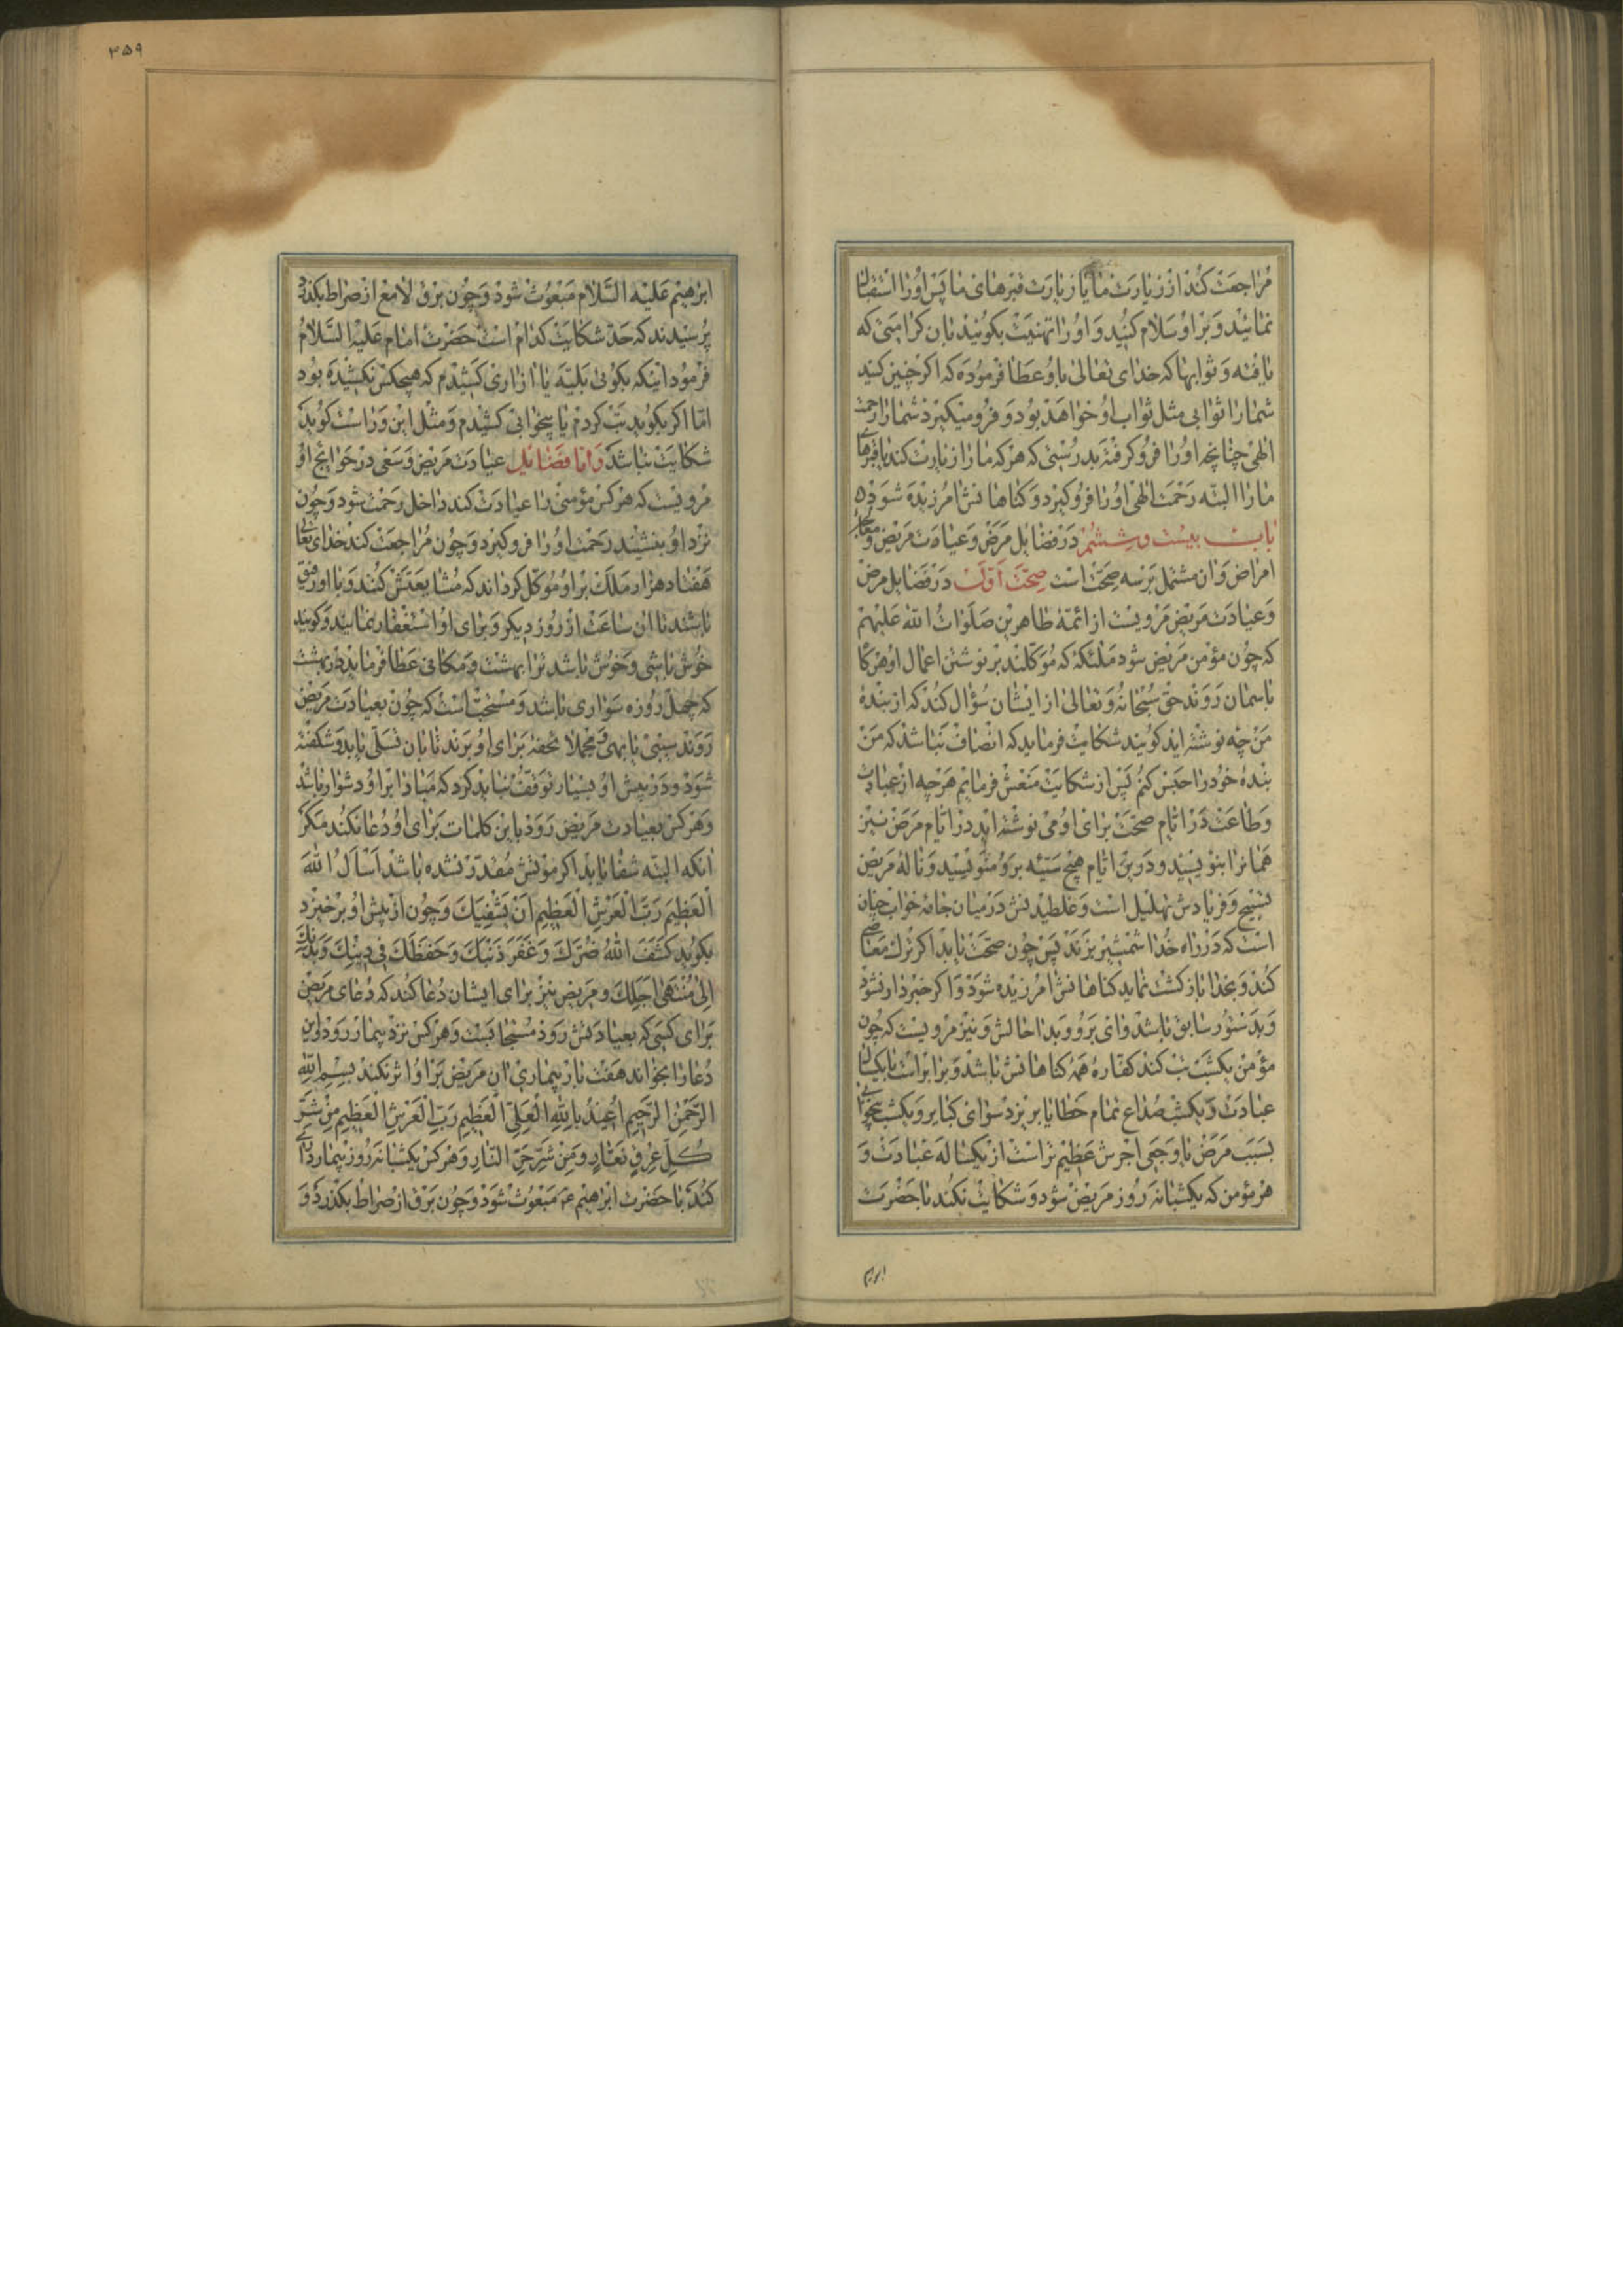 مراجعت کند از زیارت ما یا زیارت قبرهای ما پس او را استقبال
نمائید و بر او سلام کنید و او را تهنیت بکوئید بان کرامتی که
یافته و ثوابها که خدای تعالی باو عطا فرموده که اکر چنین کنید
شما را ثوابی مثل ثواب او خواهد بود و فرو میکیرد شما را رحمت
الهی چنانچه او را فرو کرفته بدرستی که هر که ما را زیارت کند یا قبرهای
ما را البته رحمت الهی او را فرو کیرد و کناهانش امرزیده شود
باب بیست و ششم در فضایل مرض و عیادت مریض و معالجه
امراض و ان مشتمل بر سه صحت است صحت اول در فضایل مرض
و عیادت مریض مرویست از ائمه طاهرین صلوات الله علیهم
که چون مؤمن مریض شود ملئکه که موکلند بر نوشتن اعمال او هرکاه
باسمان روند حق سبحانه و تعالی از ایشان سؤال کند که از بنده
من چه نوشته اید کویند شکایت فرماید که انصاف نباشد که من
بنده خود را حبس کنم پس از شکایت منعش فرمایم هر چه از عبادت
و طاعت در ایام صحت برای او می نوشته اید در ایام مرض نیز
همانرا بنویسید و درین ایام هیچ سیئه برو منویسید و ناله مریض
تسبیح و فریادش تهلیل است و غلطیدنش در میان جامه خواب چنان
است که در راه خدا شمشیر بزند پس چون صحت یابد اکر ترک معاصی
کند و بخدا بازکشت نماید کناهانش امرزیده شود و اکر خبردار نشود
و بدستور سابق باشد وای برو و بدا حالش و نیز مرویست که چون
مؤمن یکشب تب کند کفاره همه کناهانش باشد و برابر است با یکسال
عبادت و یکشب صداع تمام خطایا بریزد سوای کبایر و یکشب بیخوابی
بسبب مرض یا وجعی اجرش عظیم تر است از یکساله عبادت و
هر مؤمن که یکشبانه روز مریض شود و شکایت نکند با حضرت
ابراهیم
۳۵۹
ابرهیم علیه السلام مبعوث شود و چون برق لامع از صراط بکذرد
پرسیدند که حد شکایت کدام است حضرت امام علیه السلام
فرمود اینکه بکوئی بلیه یا ازاری کشیدم که هیچکس نکشیده بود
اما اکر بکوید تب کردم یا بیخوابی کشیدم و مثل این و راست کوید
شکایت نباشد و اما فضایل عیادت مریض و سعی در حوایج او
مرویست که هر کس مؤمنی را عیادت کند داخل رحمت شود و چون
نزد او بنشیند رحمت او را فرو کیرد و چون مراجعت کند خدای تعالی
هفتاد هزار ملک بر او موکل کرداند که مشایعتش کنند و با او رفیق
باشند تا ان ساعت از روز دیکر و برای او استغفار نمایند و کویند
خوش باشی و خوش باشد ترا بهشت و مکانی عطا فرماید در بهشت
که چهل روزه سواری باشد و مستحب است که چون بعیادت مریض
روند سیبی یا بهی و مجملا تحفه برای او برند تا بان تسلی یابد و شکفته
شود و در پیش او بسیار توقف نباید کرد که مبادا بر او دشوار باشد
و هر کس بعیادت مریض رود باین کلمات برای او دعا نکند مکر
انکه البته شفا یابد اکر موتش مقدر نشده باشد اسأل الله
العظیم رب العرش العظیم ان یشفیک و چون از پیش او برخیزد
بکوید کشف الله ضرک و غفر ذنبک و حفظک فی دینک و بدنک
الی منتهی اجلک و مریض نیز برای ایشان دعا کند که دعای مریض
برای کسی که بعیادتش رود مستجابست و هر کس نزد بیمار رود و این
دعا را بخواند هفت بار بیماری ان مریض بر او اثر نکند بسم الله
الرحمن الرحیم اعیذک بالله العلی العظیم رب العرش العظیم من شر
کل عرق نعار و من شر حر النار و هر کس یکشبانه روز بیمارداری
کند با حضرت ابرهیم ع مبعوث شود و چون برق از صراط بکذرد و